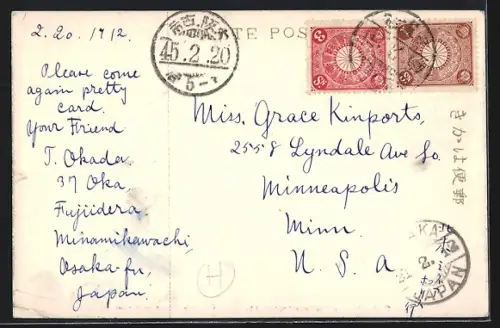 2. 20. 1912.
TE POS
45.2.20
Please come
again pretty
card.
Your Friend
T. Okada
37 Oka,
Fujiidera
Minamikawachi,
Osaka-fu,
Japan
Miss. Grace Kinports,
2558 Lyndale Ave So.
Minneapolis
Minn.
U. S. A
きかは便郵
JAPAN
H